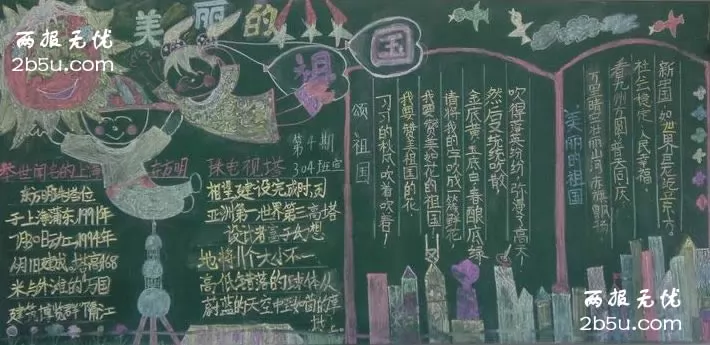 两报无忧
2b5u.com
美丽的祖国
第4期
304班宣
举世闻名的上海东方明珠电视塔
东方明珠塔位
于上海浦东,1991年
7月30日动工,1994年
10月1日建成,塔高468
米与外滩的"万国
建筑博览群"隔江
相望建设完成时,
亚洲第一世界第三高塔
设计者富于幻想
地将11个大小不一
高低错落的球体从
蔚蓝的天空中
颂祖国
习习的秋风吹着吹着!
我要赞美祖国的花
我要赞美如花的祖国
请将我的字吹成一簇鲜花
金底黄玉底白春酿底绿
然后又统统吹散
吹得落英缤纷,弥漫了高天!
美丽的祖国
万里晴空壮丽山河赤旗飘扬
看九州方圆普天同庆
社会稳定人民幸福
新中国如世界巨龙立东方
两报无忧
2b5u.com